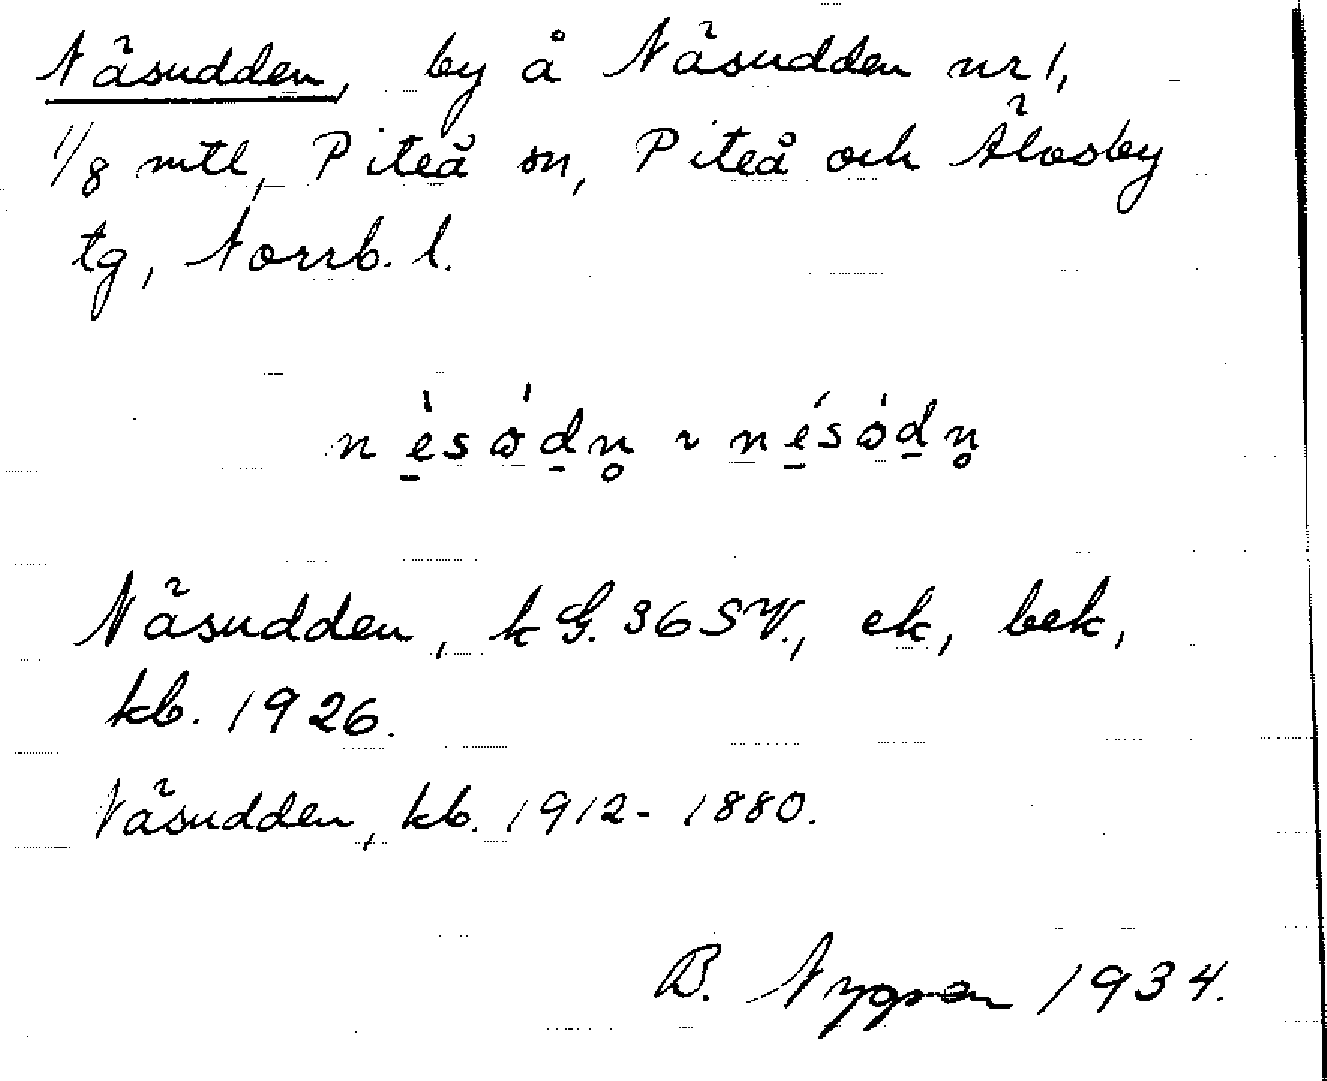 Näsudden, by å Näsudden nr 1,
1/8 mtl, Piteå sn, Piteå och Älvsby
tg, Norrb. l.
nè̱sȯ́ḏn̥ ~ né̱sȯ́ḏn̥
Näsudden, kG. 36 SV., ek, bek,
kb. 1926.
Näsudden, kb. 1912-1880.
B. Nygren 1934.